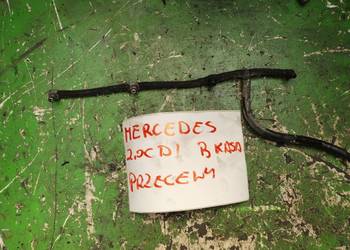 MERCEDES
2.0CDI B KASA
PRZELEWY